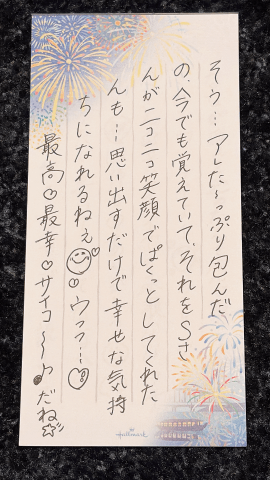 そう…アレた〜っぷり包んだ
の、今でも覚えていて、それをSさ
んがニコニコ笑顔でぱくっとしてくれた
んも…思い出すだけで幸せな気持
ちになれるねぇ ウフフ…
最高♡最幸♡サイコ〜♪だね☆
Hallmark